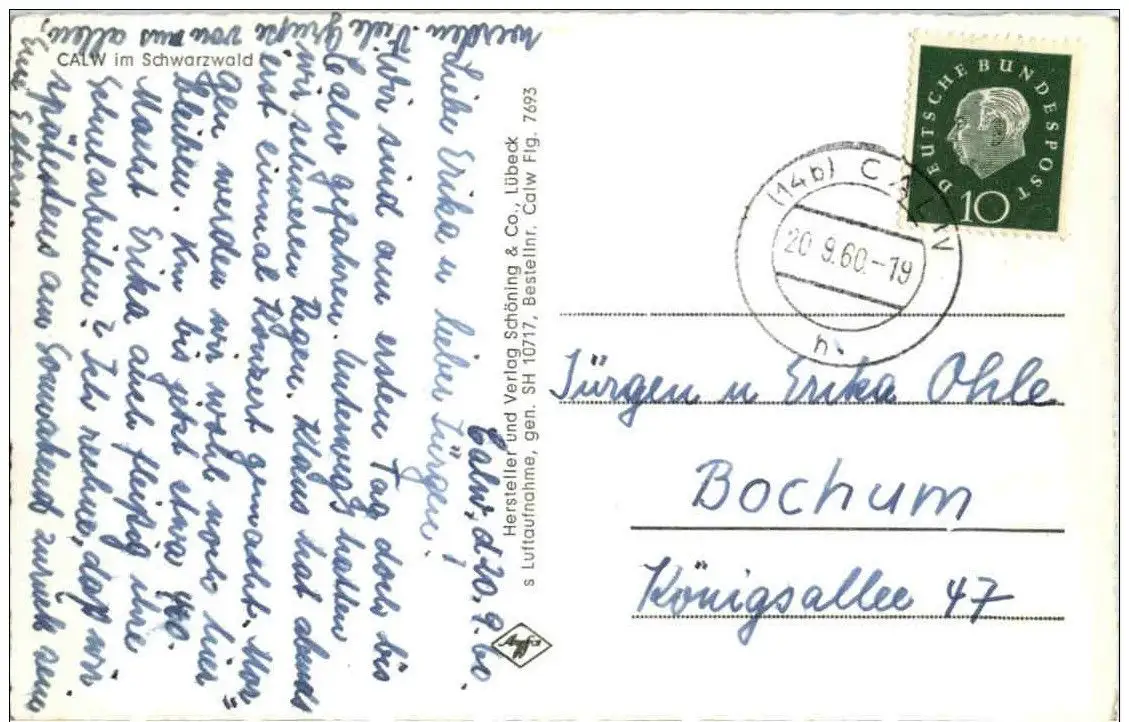 CALW im Schwarzwald
Calw, d. 20.9.60.
Liebe Erika u lieber Jürgen!
Wir sind am ersten Tag doch bis
Calw gefahren. Unterwegs hatten
wir schweren Regen. Klaus hat abends
erst einmal Konzert gemacht. Mor
gen werden wir wohl noch hier
bleiben. Km bis jetzt etwa 400.
Macht Erika auch fleißig ihre
Schularbeiten? Ich rechne, daß wir
spätestens am Sonnabend zurück sein
werden. Viele Grüße von uns allen,
Eure Eltern.
Hersteller und Verlag Schöning & Co., Lübeck
s Luftaufnahme, gen. SH 10717, Bestellnr. Calw Flg. 7693
DEUTSCHE BUNDESPOST
10
(14b) CALW
20.9.60.-19
h
Jürgen u Erika Ohle
Bochum
Königsallee 47